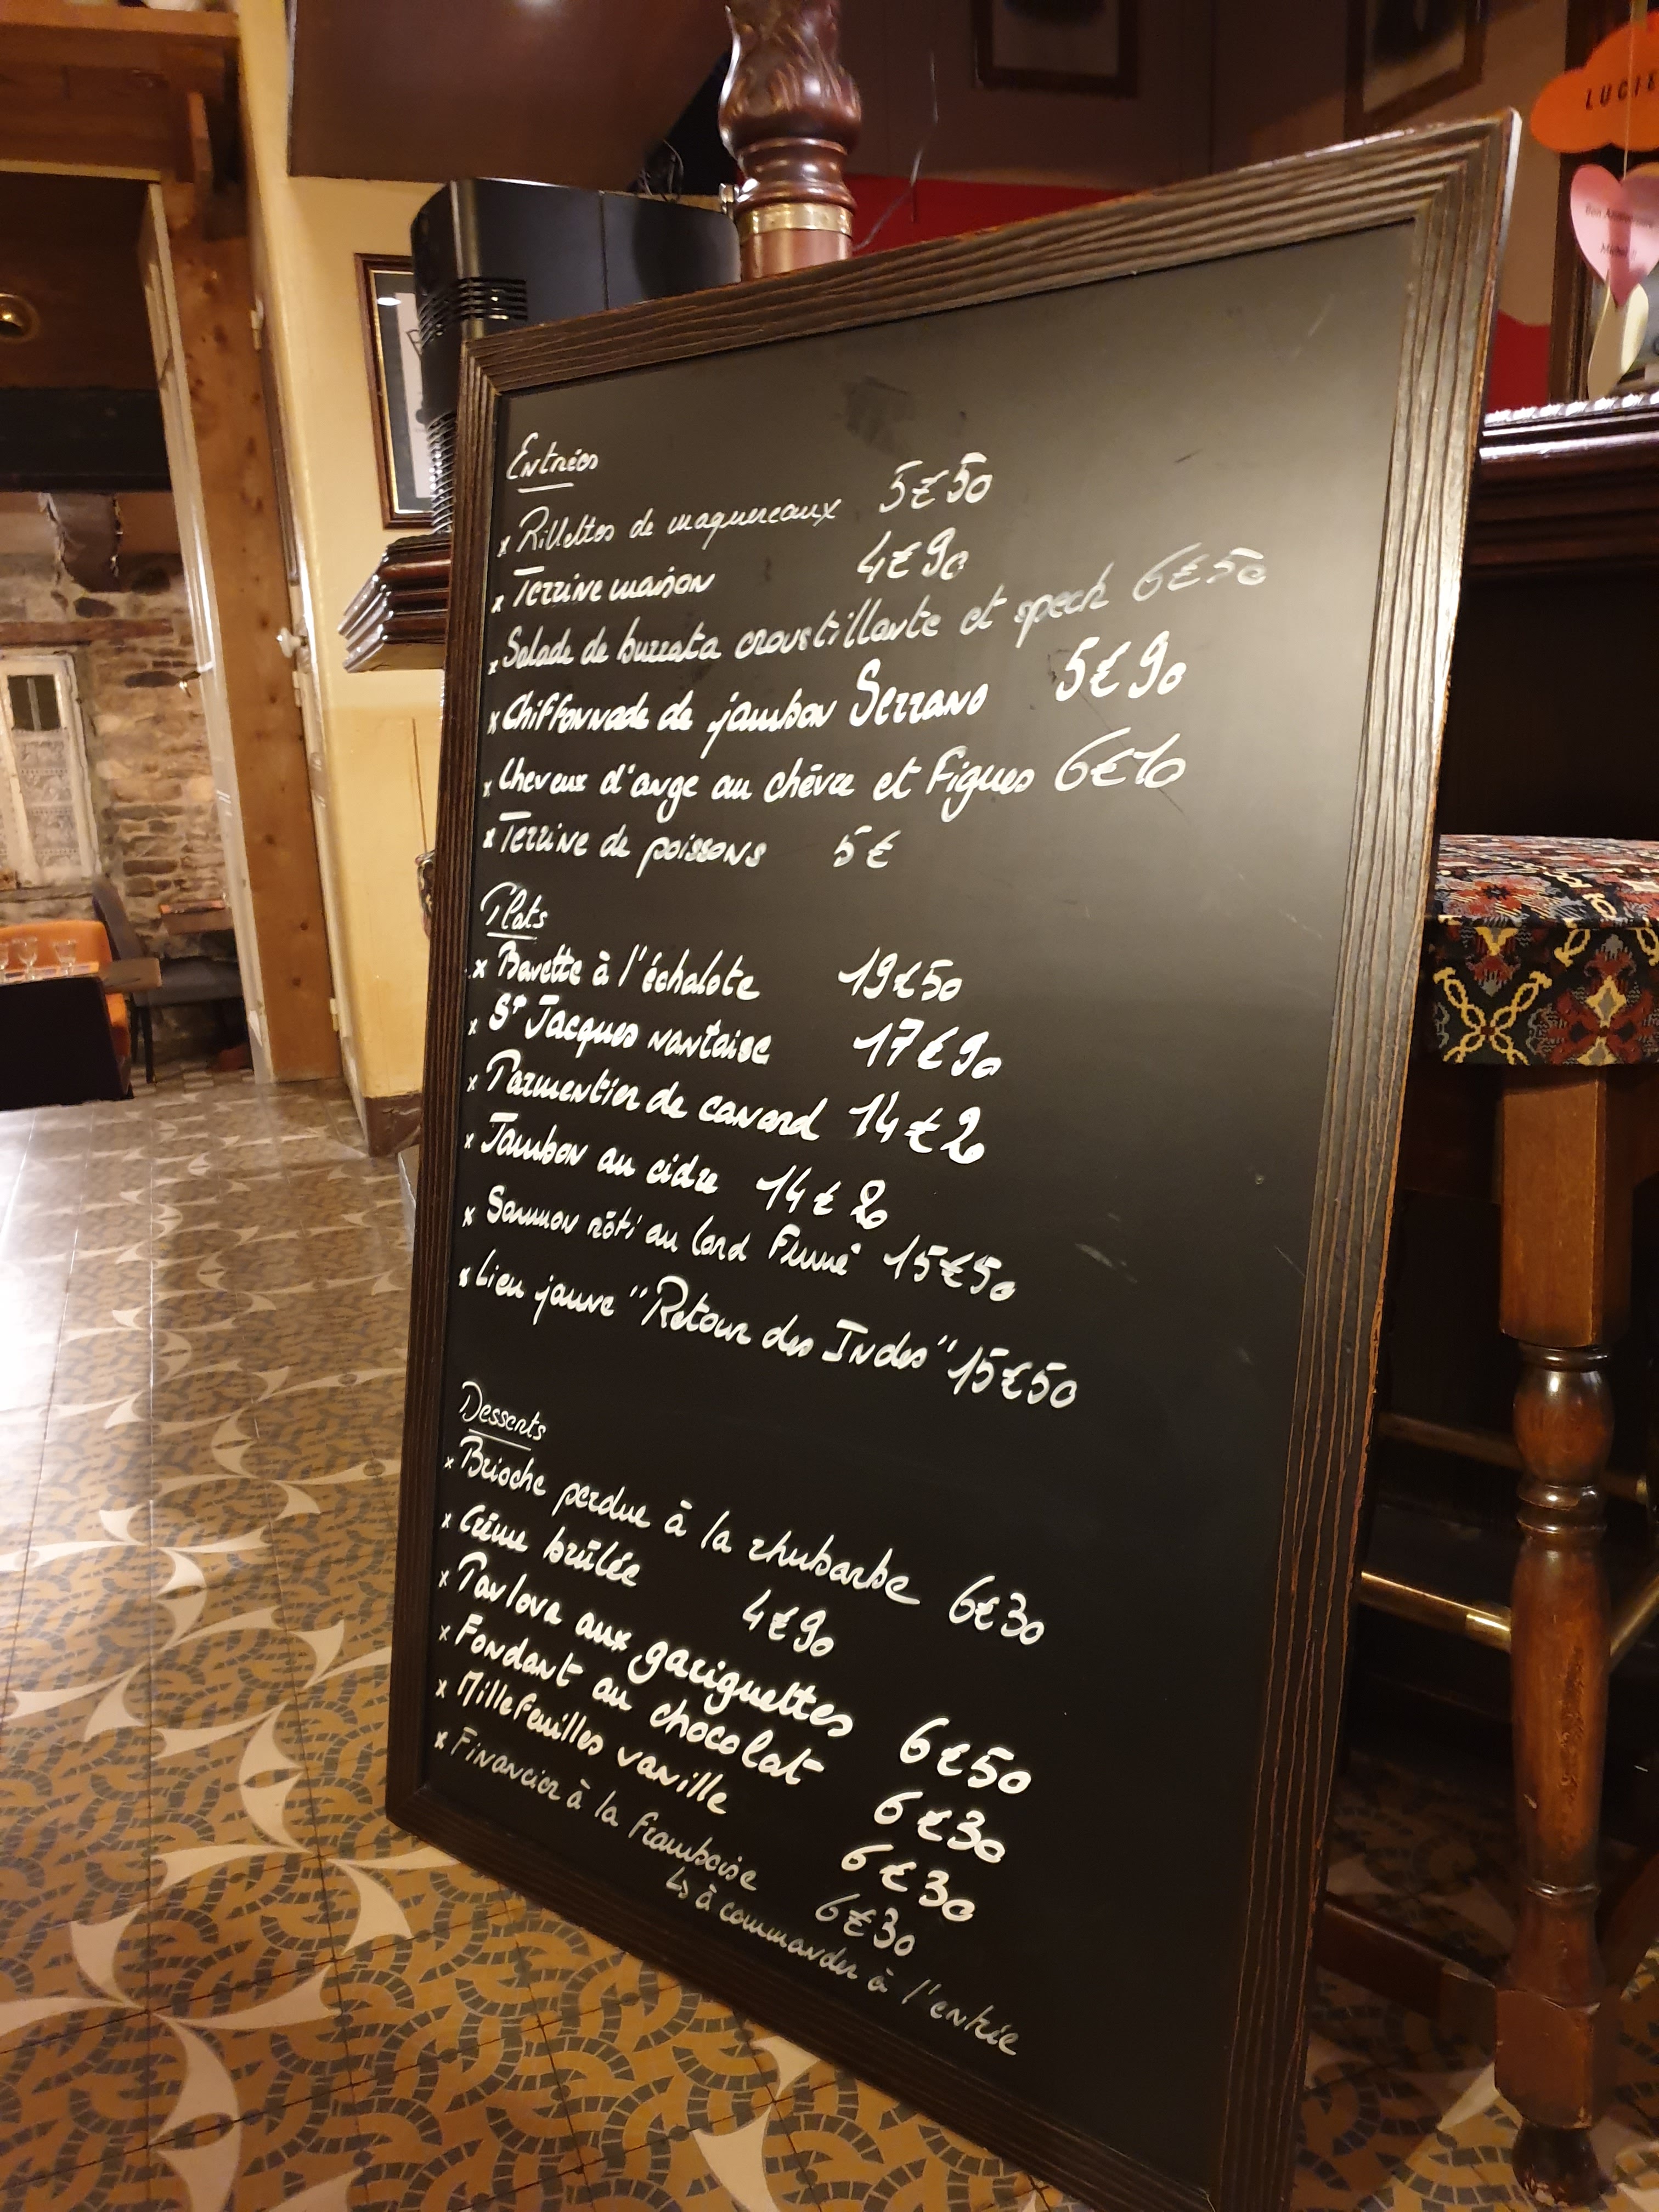 Entrées
x Rillettes de maquereaux 5€50
x Terrine maison 4€90
x Salade de burrata croustillante et speck 6€50
x Chiffonnade de jambon Serrano 5€90
x Cheveux d'ange au chèvre et figues 6€10
x Terrine de poissons 5€
Plats
x Bavette à l'échalote 19€50
x St Jacques nantaise 17€90
x Parmentier de canard 14€20
x Jambon au cidre 14€20
x Saumon rôti au lard fumé 15€50
x Lieu jaune "Retour des Indes" 15€50
Desserts
x Brioche perdue à la rhubarbe 6€30
x Crème brûlée 4€90
x Pavlova aux gariguettes 6€50
x Fondant au chocolat 6€30
x Millefeuilles vanille 6€30
x Financier à la framboise 6€30
↳ à commander à l'entrée
LUCIE
Bon Anniversaire